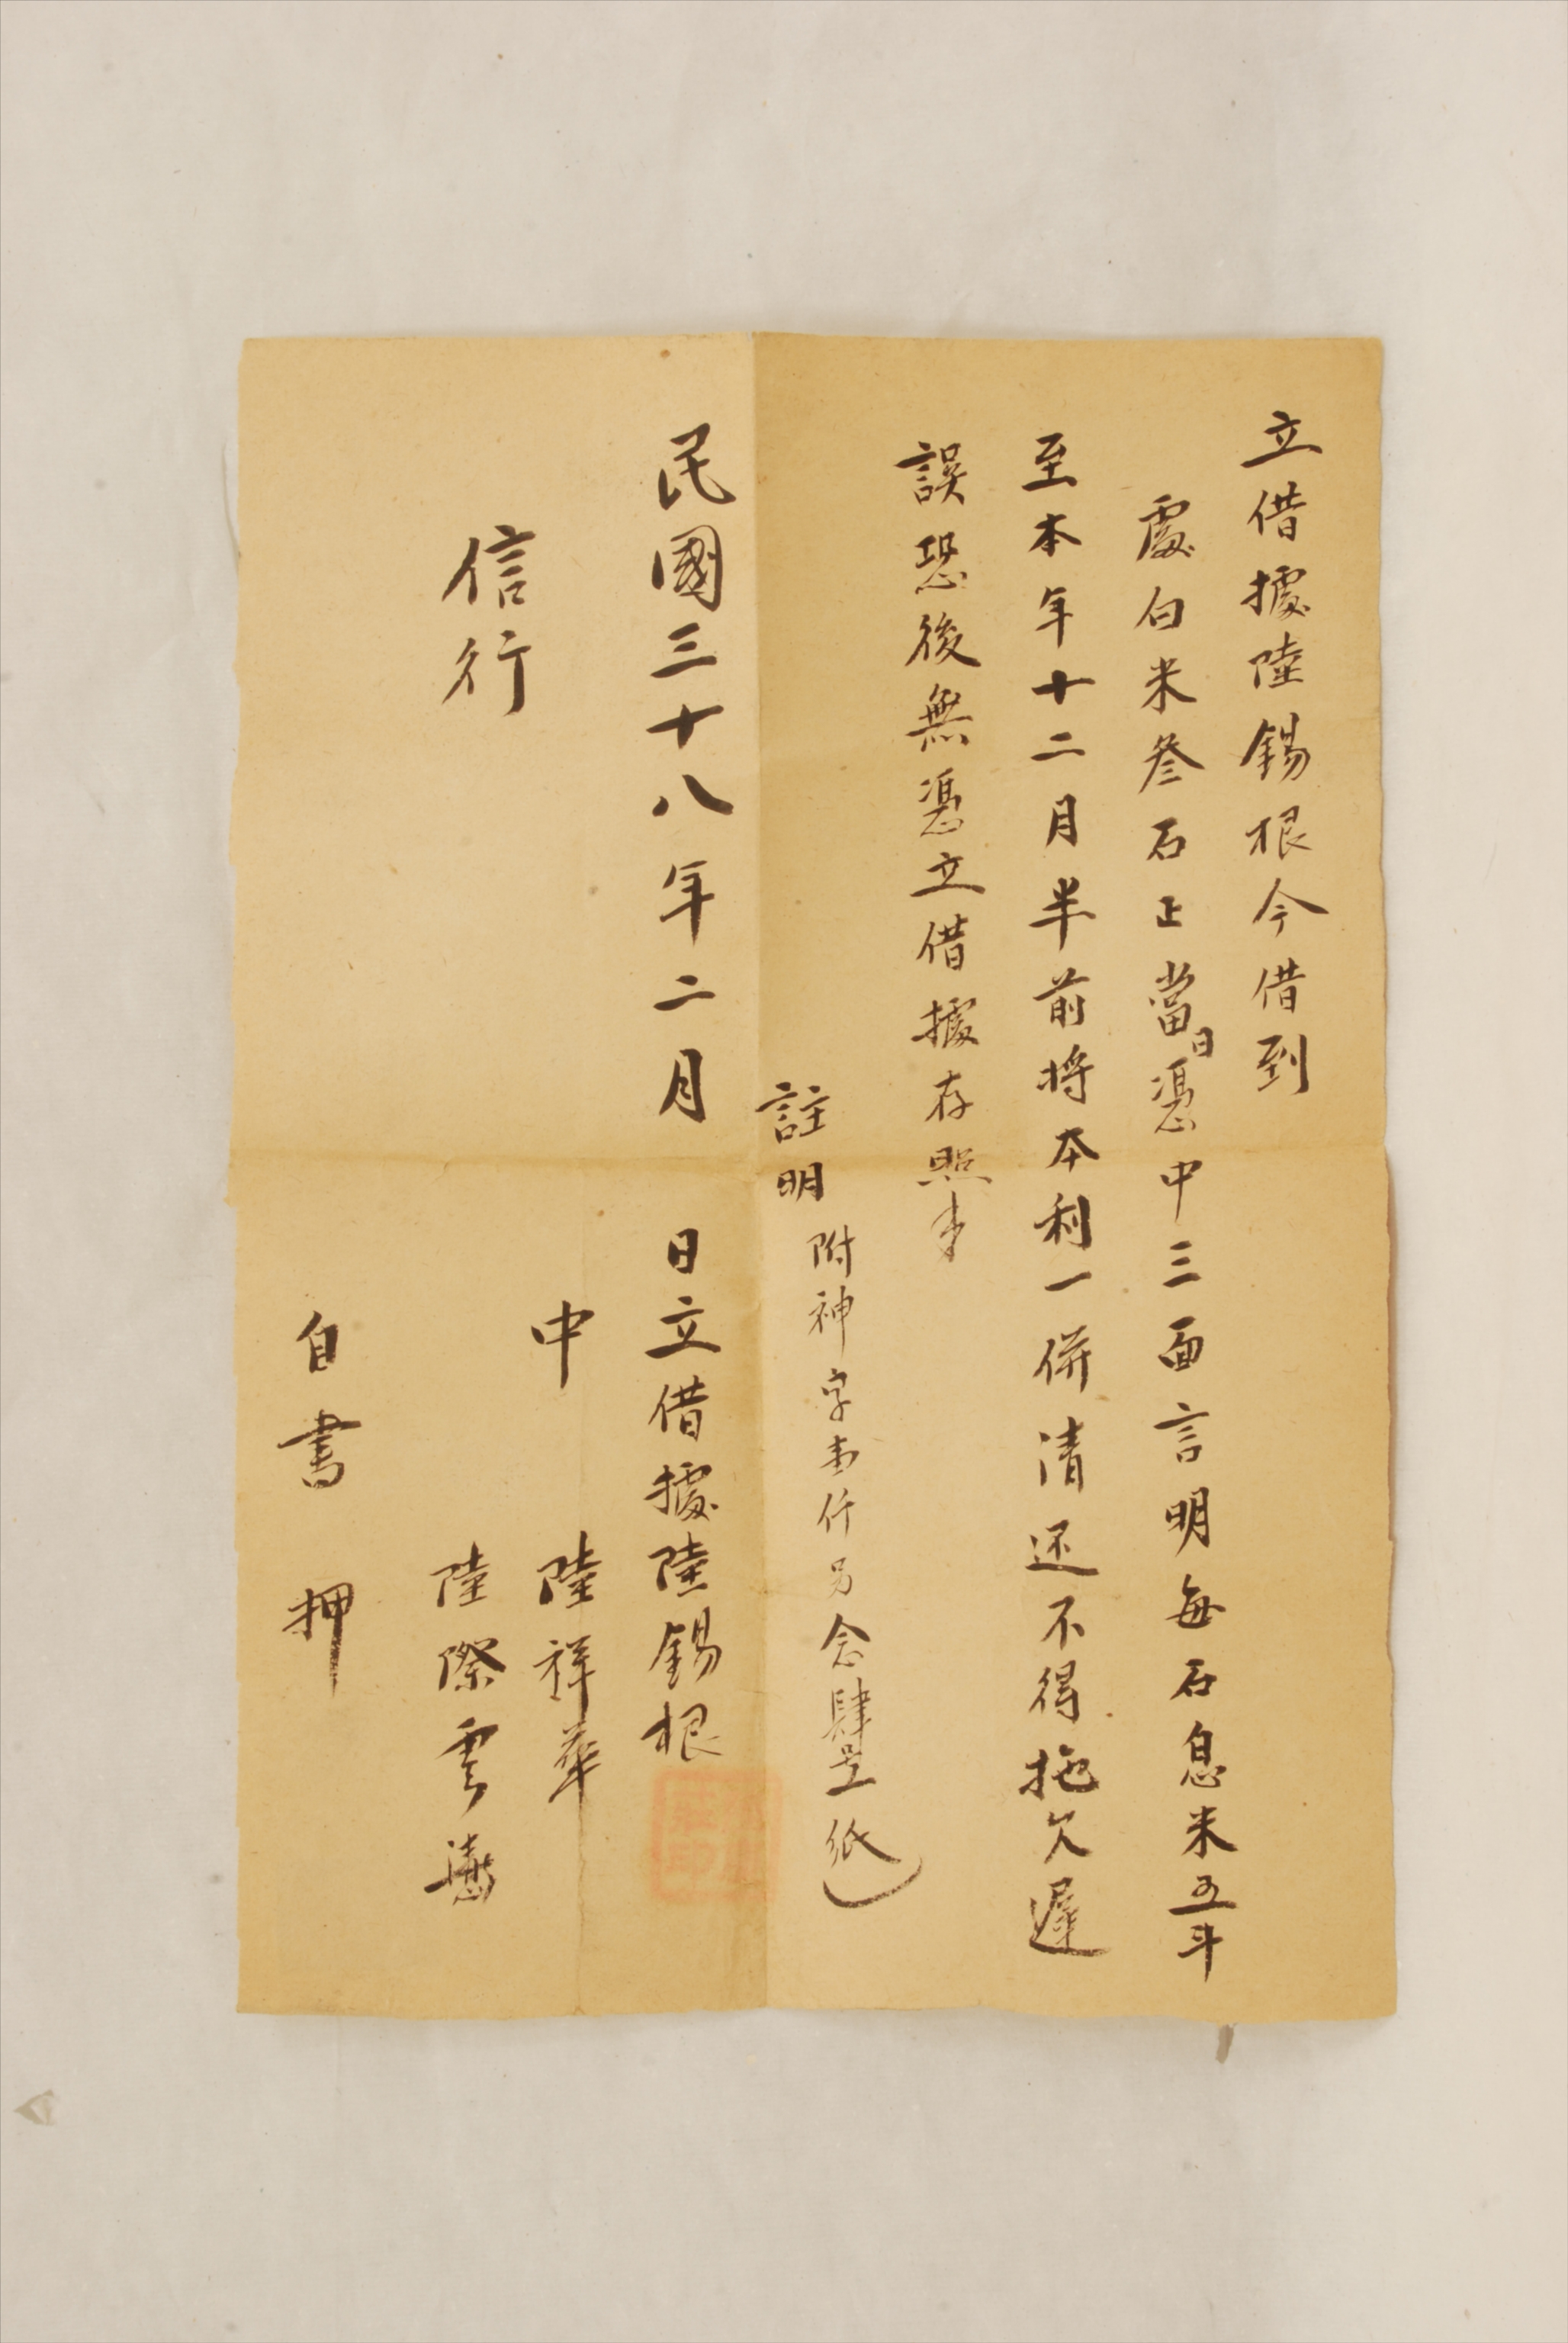 立借據陸錫根今借到
處白米叁石正當日憑中三面言明每石息米五斗
至本年十二月半前将本利一併清还不得拖欠遲
誤恐後無憑立借據存照
註明 附神字 仟 念肆號一紙
民國三十八年二月 日立借據陸錫根
中 陸祥華
信行 陸際雲
自書 押